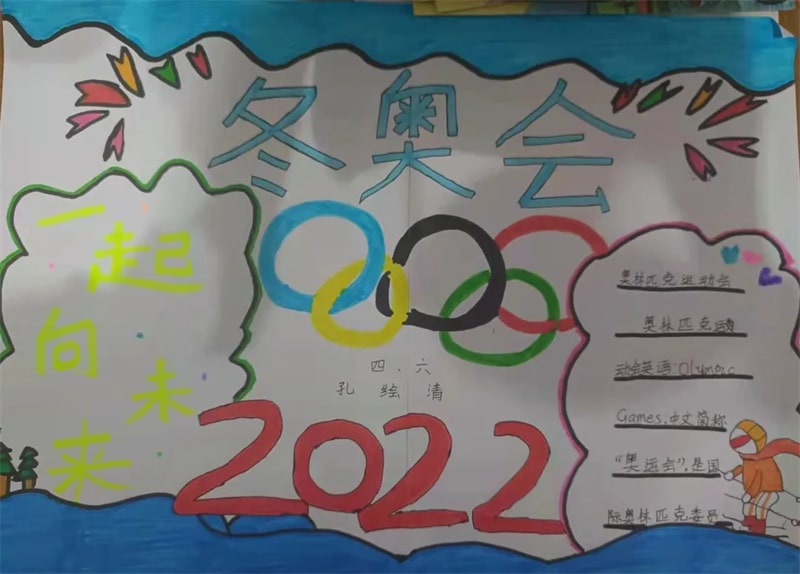 冬奥会
一起
向未
来
四、六
孔绘清
2022
奥林匹克运动会
奥林匹克运
动会英语:Olympic
Games,中文简称
"奥运会",是国
际奥林匹克委员